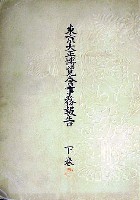 東京大正博覧會事務報告
下巻